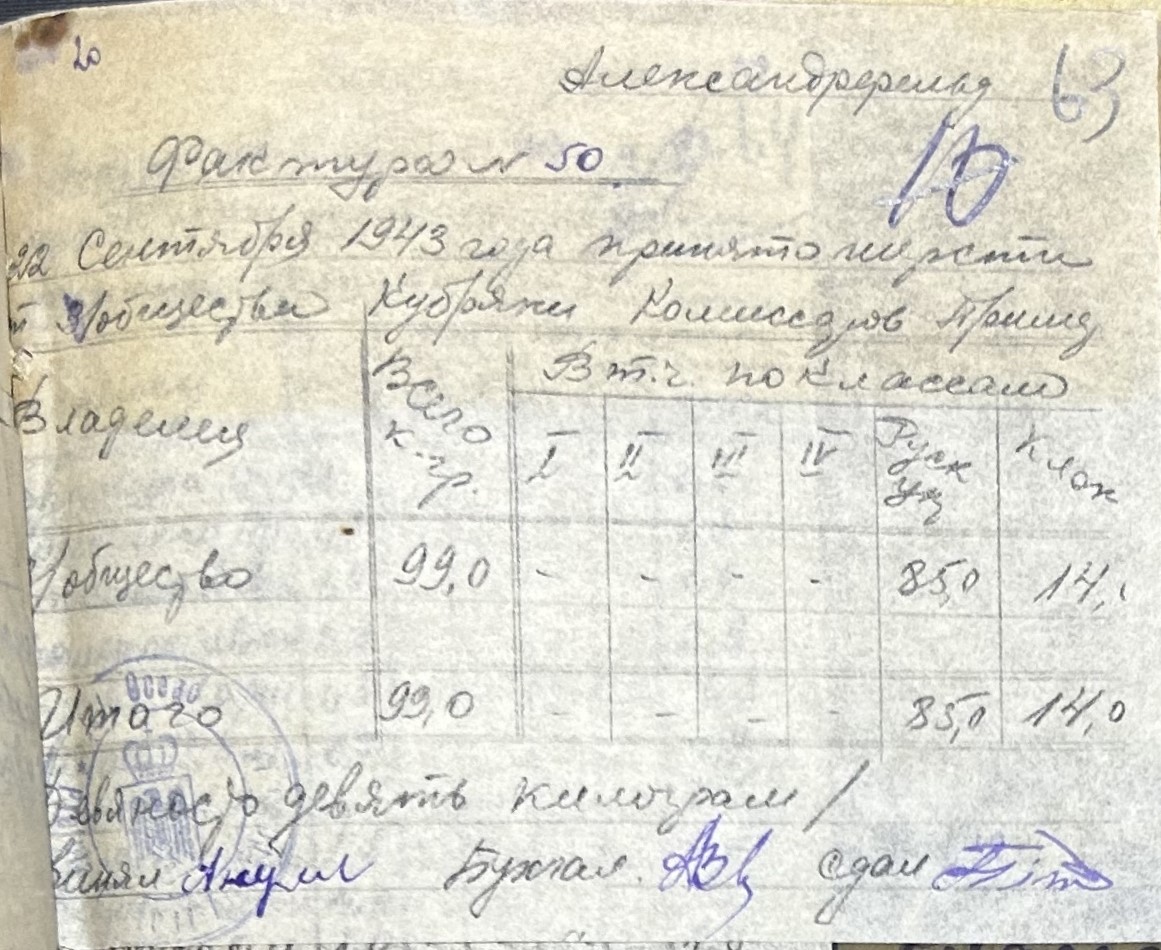 20
Александрфельд 63
Фактура № 50
22 Сентября 1943 года принято шерсти
общества Кубряки Комиссаров Прииц
Владелец
Всего к-гр.
В т.ч. по классам
I II III IV Руск Уц Клок
общество 99,0 - - - - 85,0 14,
Итого 99,0 - - - - 85,0 14,0
Девяносто девять килограм /
Бухгал. сдал